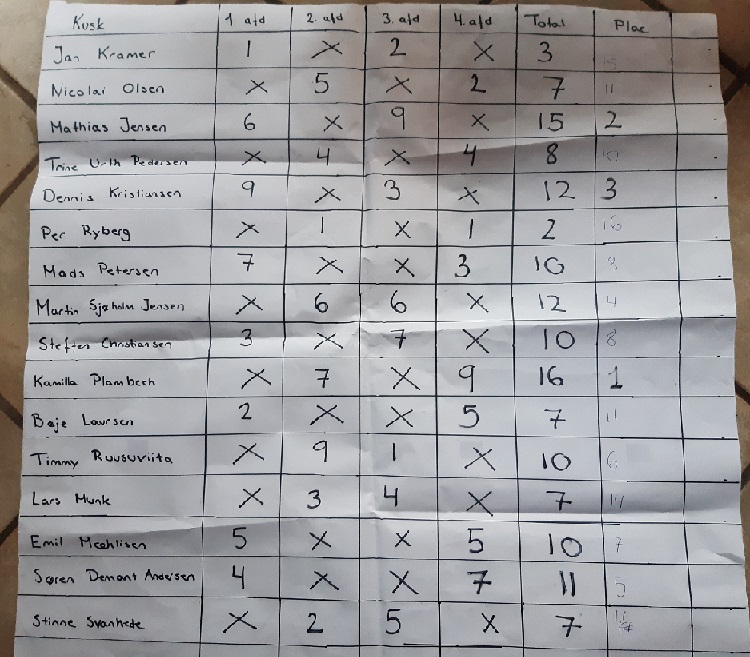 Kusk 1 afd 2. afd 3. afd 4. afd Total Plac
Jan Kramer 1 X 2 X 3 15
Nicolai Olsen X 5 X 2 7 11
Mathias Jensen 6 X 9 X 15 2
Trine Pedersen X 4 X 4 8 10
Dennis Kristiansen 9 X 3 X 12 3
Per Ryberg X 1 X 1 2 16
Mads Petersen 7 X X 3 10 8
Martin Sjøholm Jensen X 6 6 X 12 4
Steffen Christiansen 3 X 7 X 10 8
Kamilla Plambech X 7 X 9 16 1
Boje Laursen 2 X X 5 7 11
Timmy Ruusuviita X 9 1 X 10 6
Lars Munk X 3 4 X 7 14
Emil 5 X X 5 10 7
Søren Demant Andersen 4 X X 7 11 5
Stinne Svanhede X 2 5 X 7